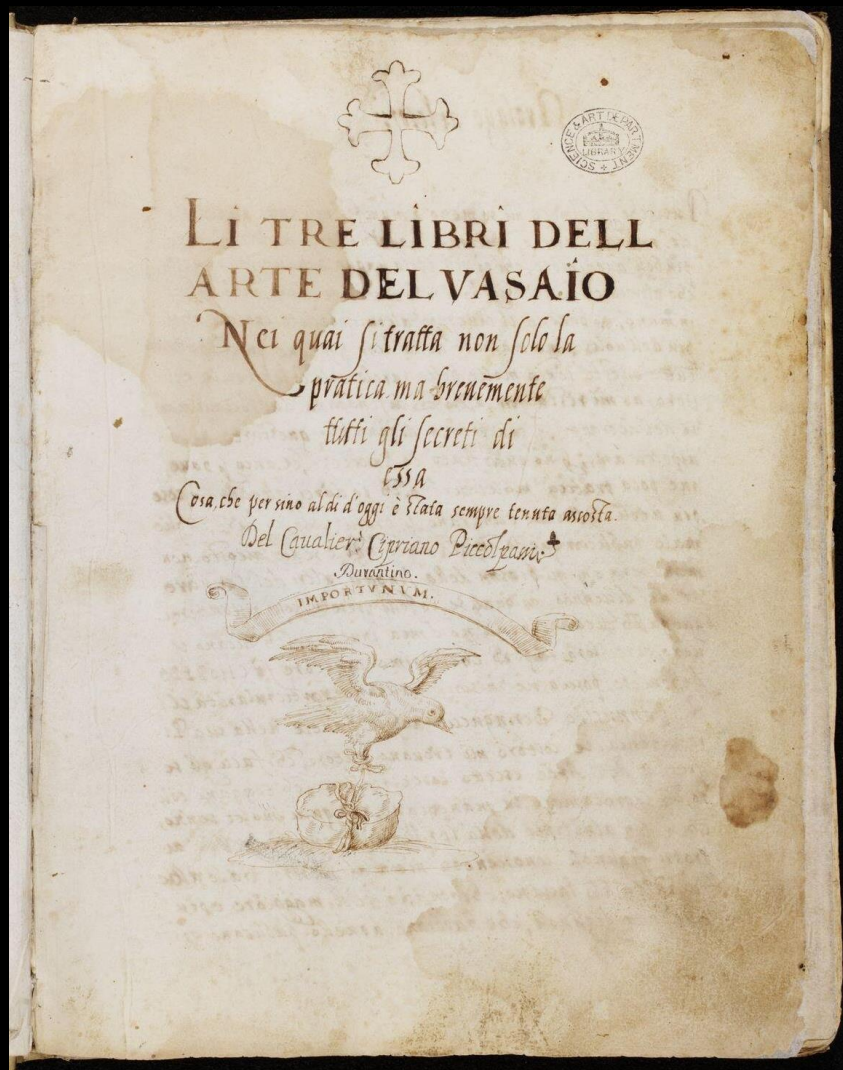 SCIENCE & ART DEPARTMENT
LIBRARY
LI TRE LIBRI DELL
ARTE DEL VASAIO
Nei quai si tratta non solo la
pratica ma brevemente
tutti gli secreti di
essa
Cosa, che persino al di d'oggi è stata sempre tenuta ascosta.
Del Cavalier Cipriano Piccolpassi
Durantino.
IMPORTVNVM.